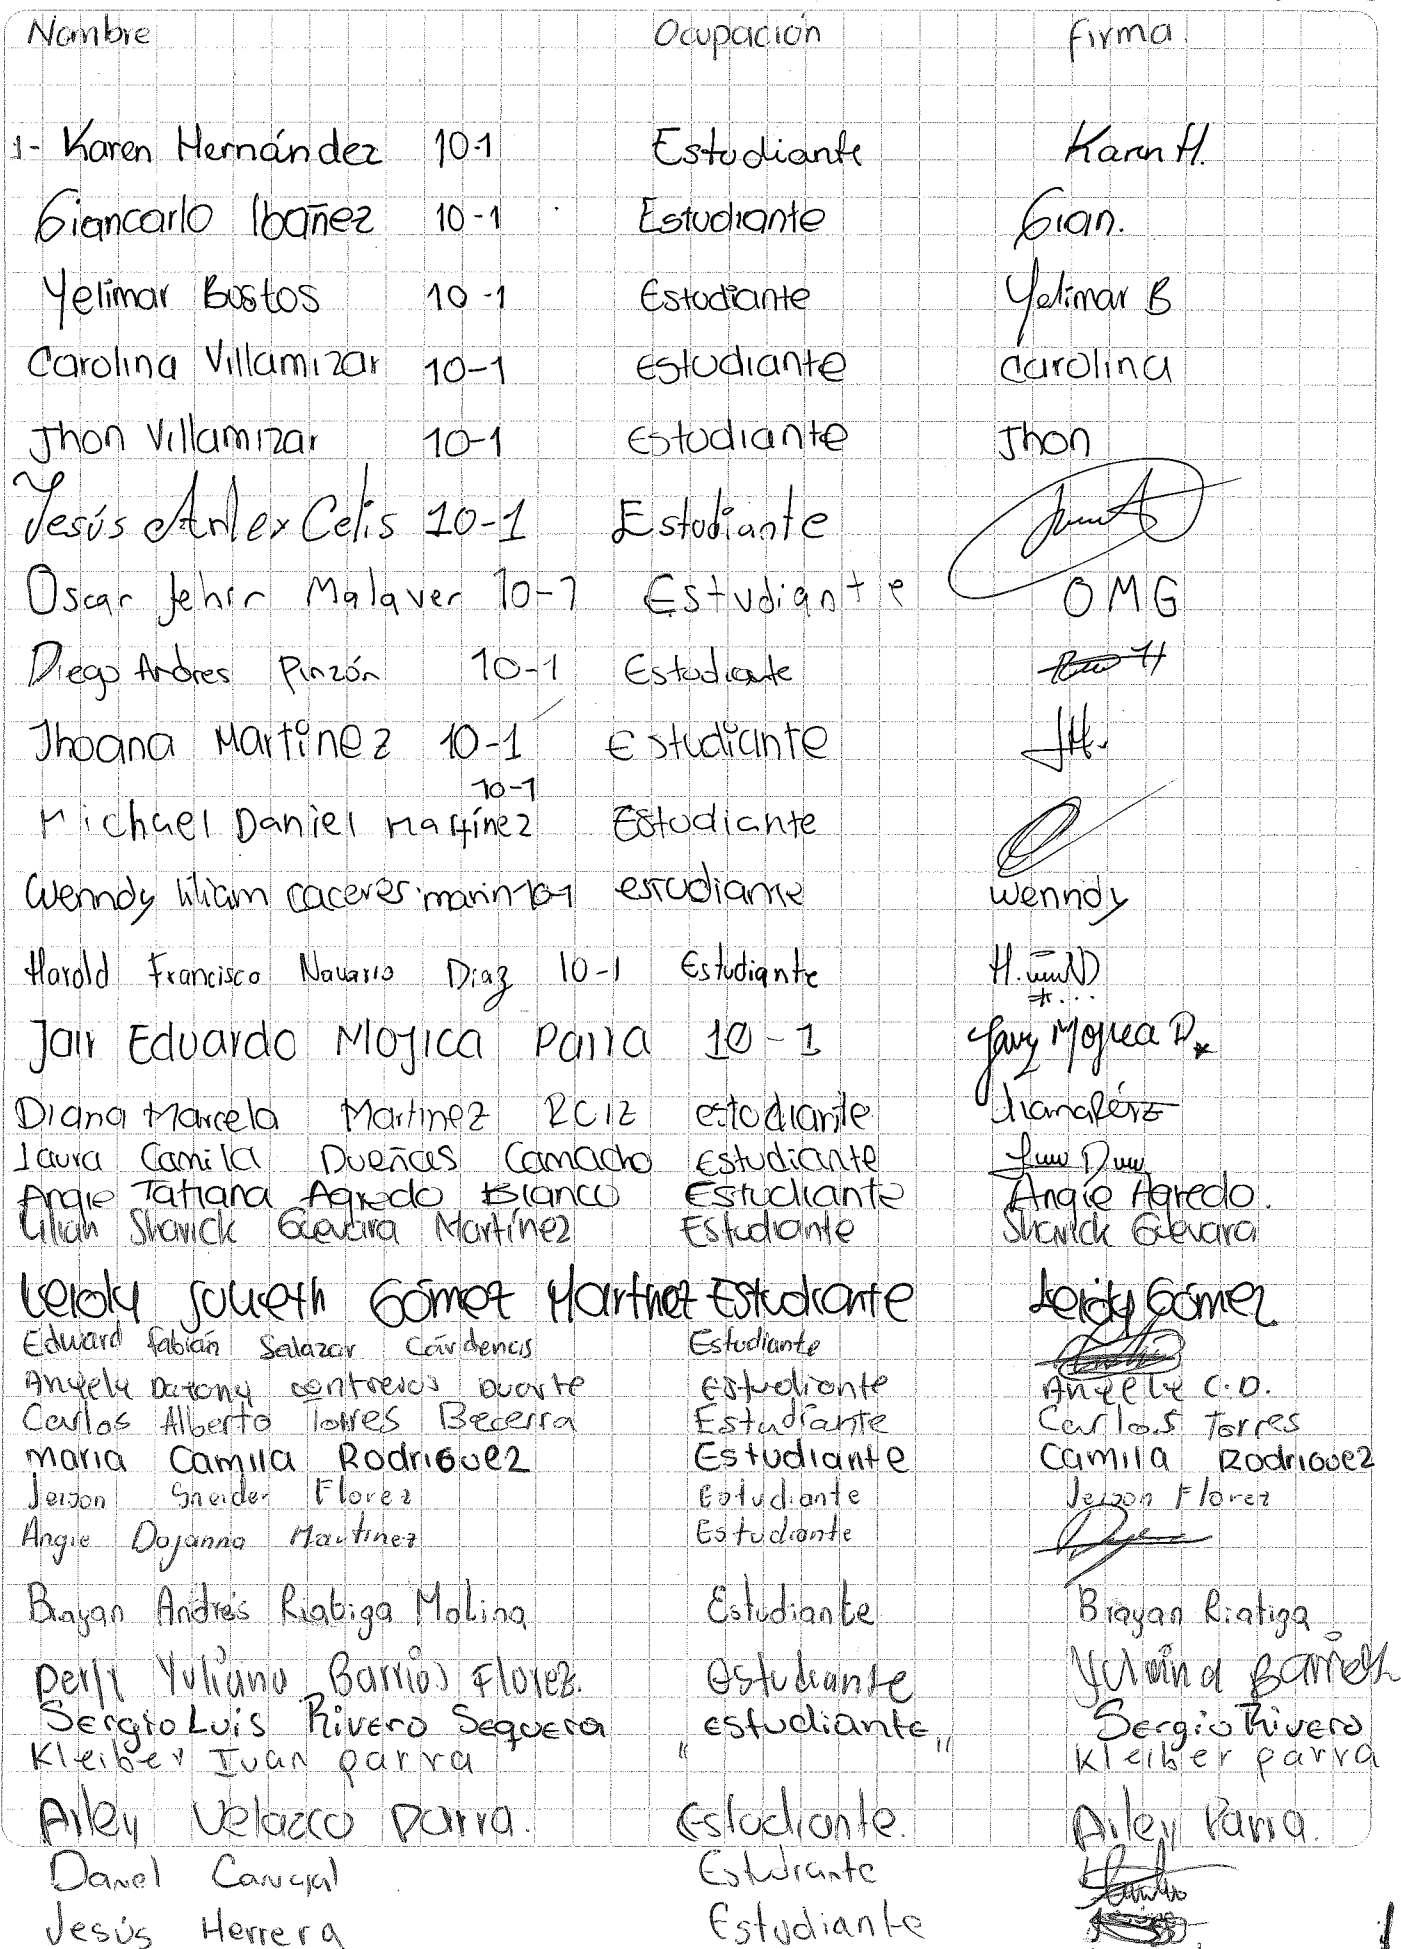 Nombre Ocupación Firma.
1- Karen Hernández 10-1 Estudiante Karen H.
Giancarlo Ibañez 10-1 Estudiante Gian.
Yelimar Bustos 10-1 Estudiante Yelimar B
Carolina Villamizar 10-1 Estudiante Carolina
Jhon Villamizar 10-1 Estudiante Jhon
Jesús Arlex Celis 10-1 Estudiante
Oscar Malaver 10-1 Estudiante OMG
Diego Andres Pinzón 10-1 Estudiante
Jhoana Martinez 10-1 Estudiante JH.
10-1
Michael Daniel Martínez Estudiante
Wenndy liliam caceres marin 10-1 estudiante wenndy
Harold Francisco Navarro Diaz 10-1 Estudiante
Jair Eduardo Mojica Parra 10-1 Mojica
Diana Marcela Martinez estudiante
Laura Camila Dueñas Camacho Estudiante
Angie Tatiana Agredo Blanco Estudiante Angie Agredo.
Lilian Sharick Guevara Martínez Estudiante Sharick Guevara
Leidy Julieth Gómez Martinez Estudiante Leidy Gómez
Edward fabián Salazar Cárdenas Estudiante
Angely Dayany contreras Duarte Estudiante Angely C.D.
Carlos Alberto Torres Becerra Estudiante Carlos Torres
Maria Camila Rodriguez Estudiante Camila Rodriguez
Jeison Sneider Florez Estudiante Jeison Florez
Angie Dajanna Martinez Estudiante
Brayan Andrés Riatiga Molina Estudiante Brayan Riatiga
Yuliana Barrios Florez. estudiante
Sergio Luis Rivero Sequera estudiante Sergio Rivero
Kleiber Ivan parra " " Kleiber parra
Arley Velazco Parra. Estudiante. Arley Parra.
Daniel Carvajal Estudiante
Jesús Herrera Estudiante